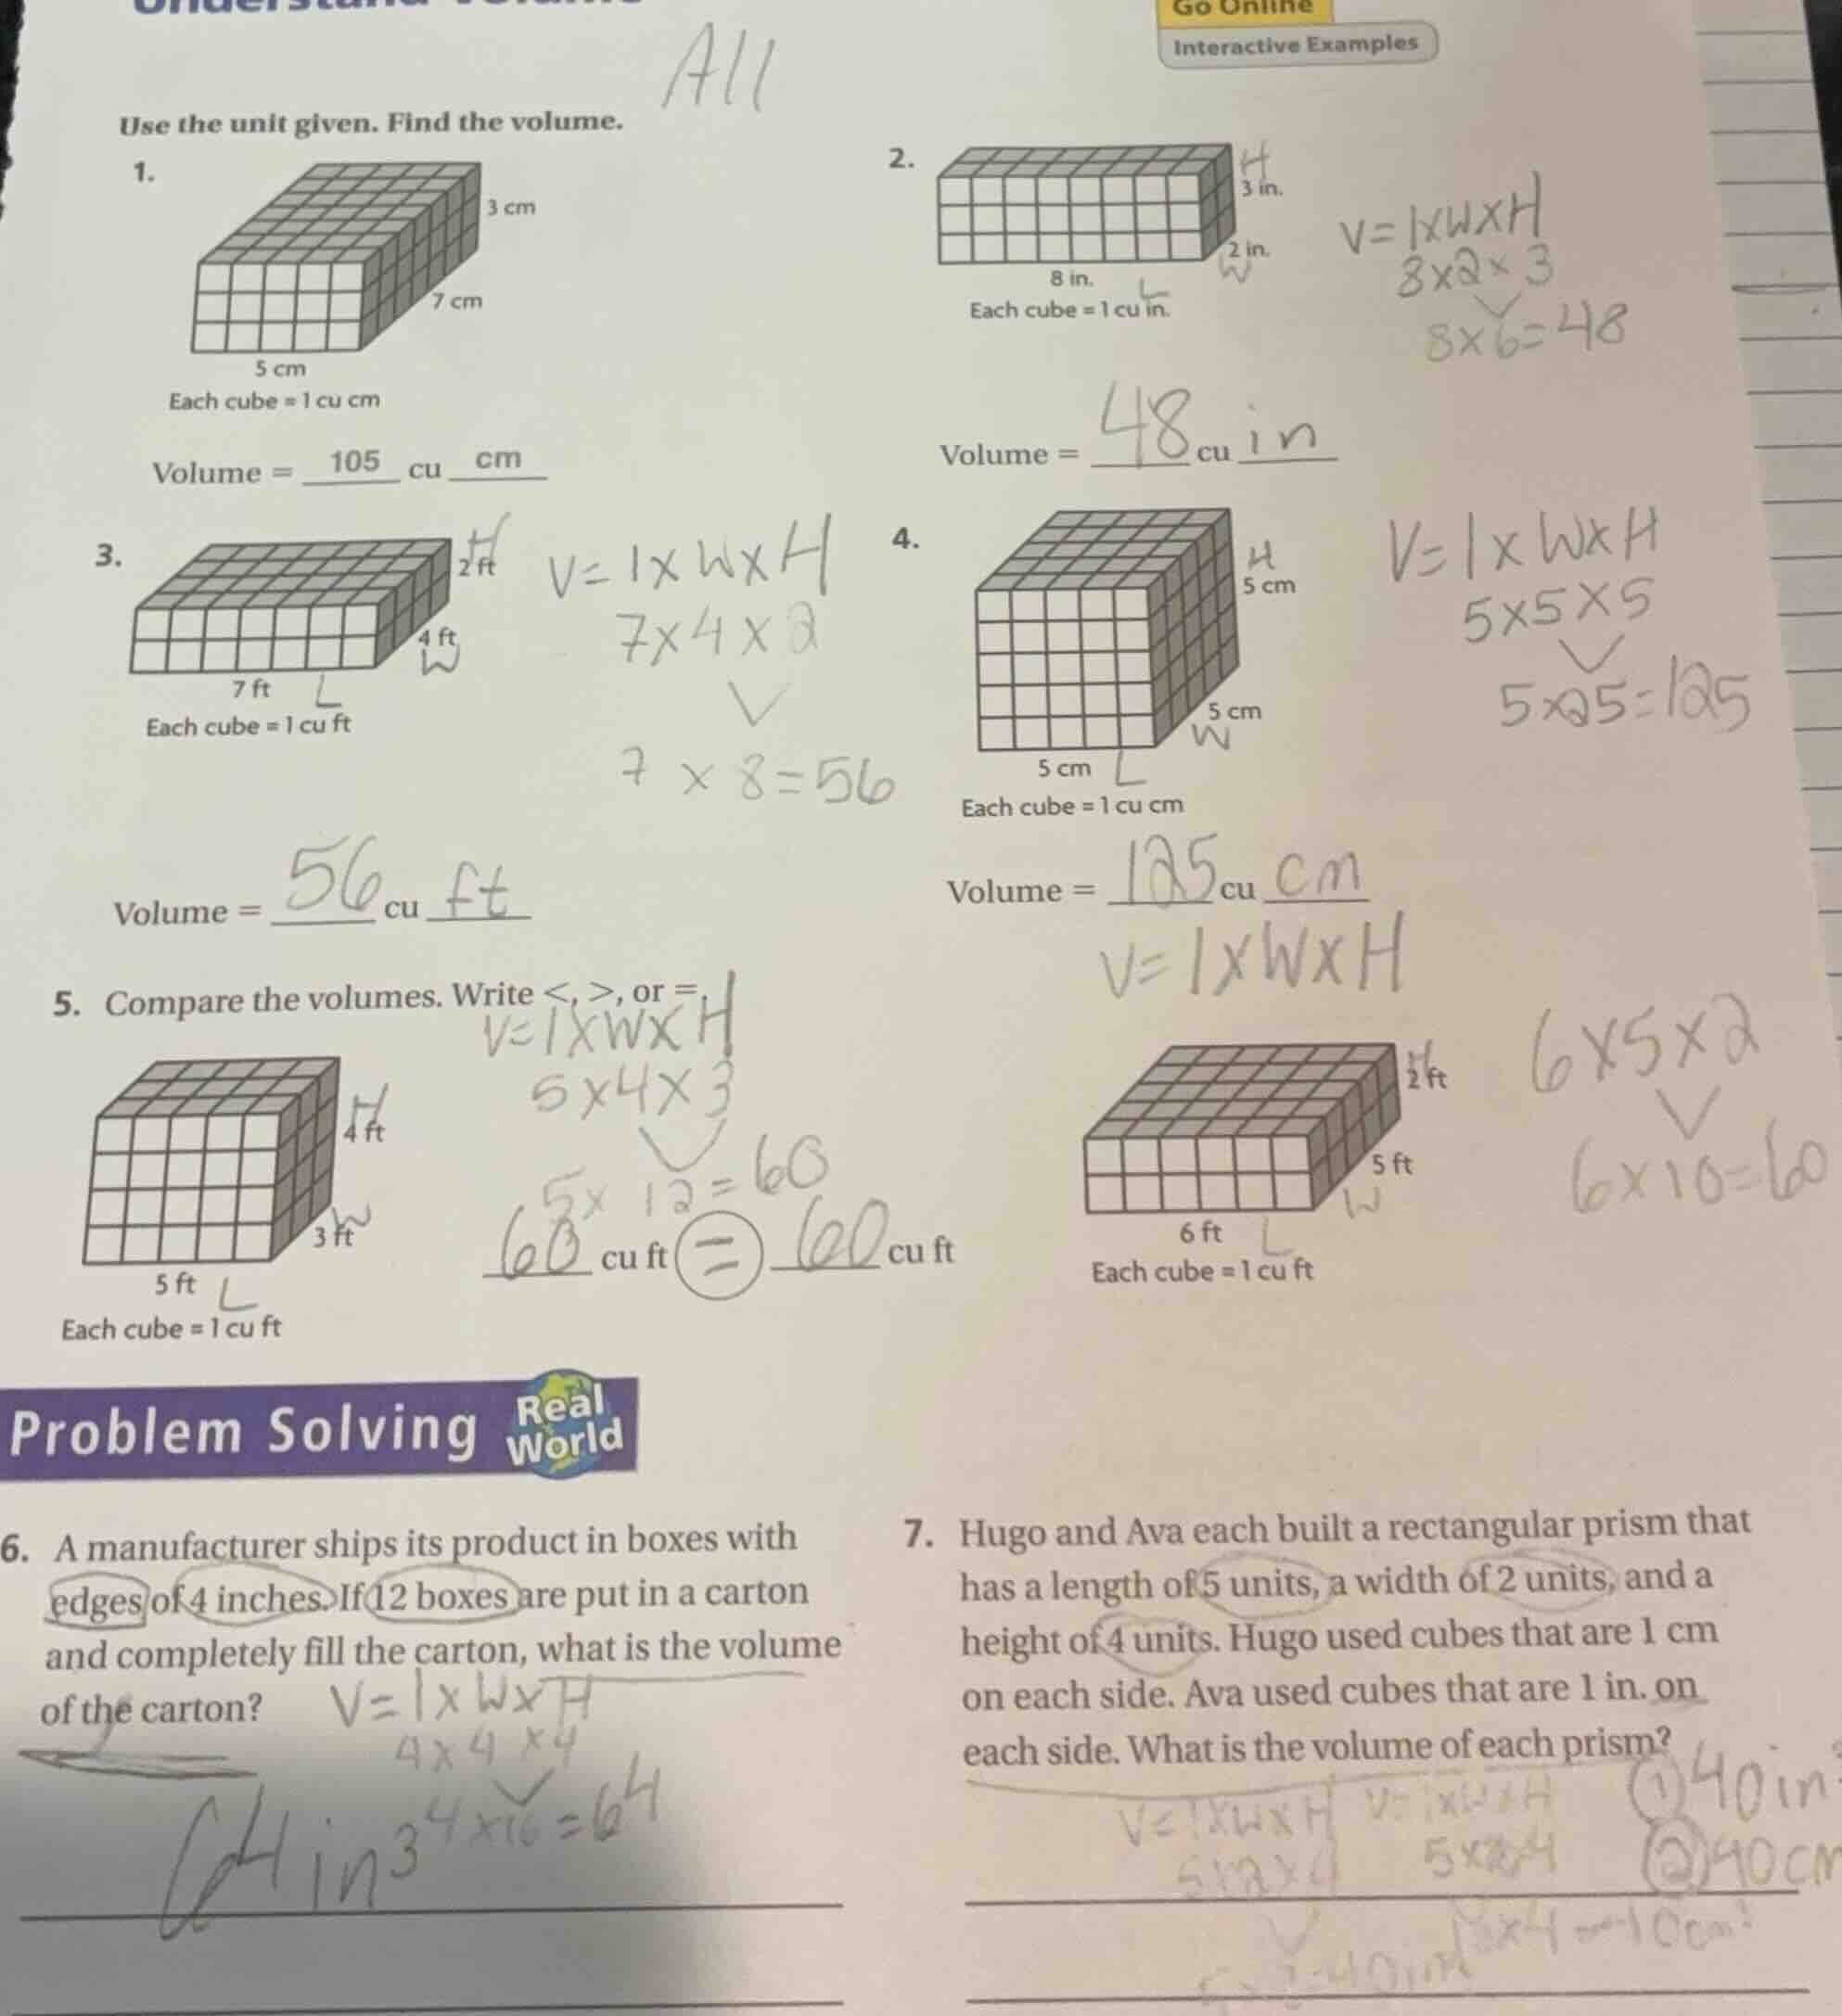 Understand Volume
Go Online
Interactive Examples
All
Use the unit given. Find the volume.
1.
3 cm
7 cm
5 cm
Each cube = 1 cu cm
Volume = 105 cu cm
2.
H
3 in.
2 in.
W
8 in.
L
Each cube = 1 cu in.
V=lxWxH
8x2x3
8x6=48
Volume = 48 cu in
3.
H
2 ft
4 ft
W
7 ft
L
Each cube = 1 cu ft
V=lxWxH
7x4x2
7x8=56
Volume = 56 cu ft
4.
H
5 cm
5 cm
W
5 cm
L
Each cube = 1 cu cm
V=lxWxH
5x5x5
5x25=125
Volume = 125 cu cm
5. Compare the volumes. Write <, >, or =.
V=lxWxH
5x4x3
5x12=60
H
4 ft
3 ft
W
5 ft
L
Each cube = 1 cu ft
60 cu ft = 60 cu ft
V=lxWxH
6x5x2
6x10=60
H
2 ft
5 ft
W
6 ft
L
Each cube = 1 cu ft
Problem Solving Real
World
6. A manufacturer ships its product in boxes with
edges of 4 inches. If 12 boxes are put in a carton
and completely fill the carton, what is the volume
of the carton?
V=lxWxH
4x4x4
4x16=64
64in3
7. Hugo and Ava each built a rectangular prism that
has a length of 5 units, a width of 2 units, and a
height of 4 units. Hugo used cubes that are 1 cm
on each side. Ava used cubes that are 1 in. on
each side. What is the volume of each prism?
V=lxWxH V=lxWxH
5x2x4 5x2x4
1 40in
2 40cm